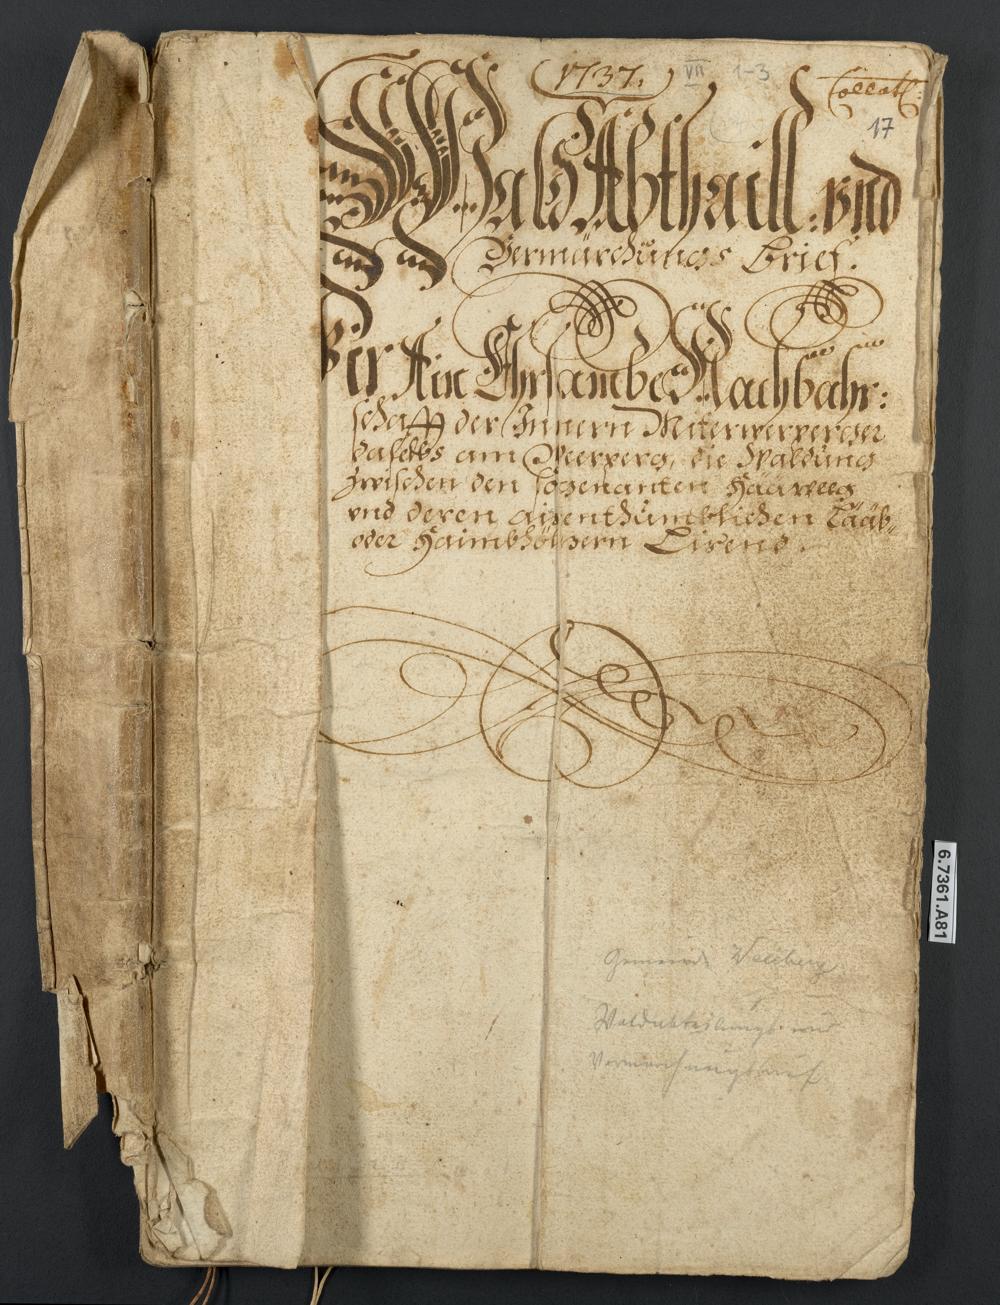 1737.
VII 1-3
Collat:
17
Wald Abthaill: vnd
Vermarchungs Brief.
Für Ain Ehrsambe Nachbahr:
schafft der Innern Miterwerperger
daselbs am Weerperg, die Waldung
zwischen den sogenanten Haarweeg
vnd deren aigenthümblichen Taåb-
oder Haimbhölzern Ligend.
Gemeinde Weerberg
Waldabteilungs- und
Vermarchungsbrief
6.7361.A81